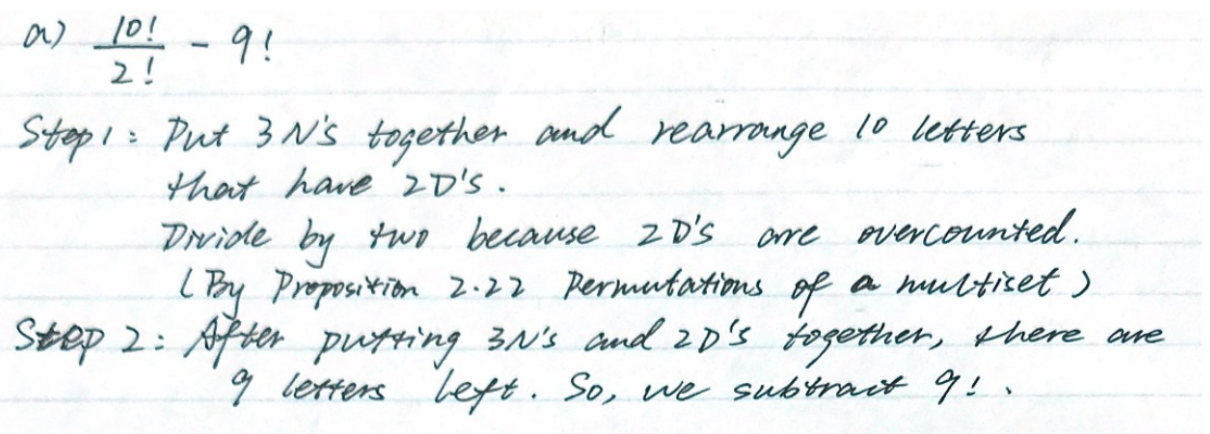 a) 10!/2! - 9!
Step 1: Put 3 N's together and rearrange 10 letters
that have 2D's.
Divide by two because 2D's are overcounted.
(By Proposition 2.22 Permutations of a multiset)
Step 2: After putting 3N's and 2D's together, there are
9 letters left. So, we subtract 9!.